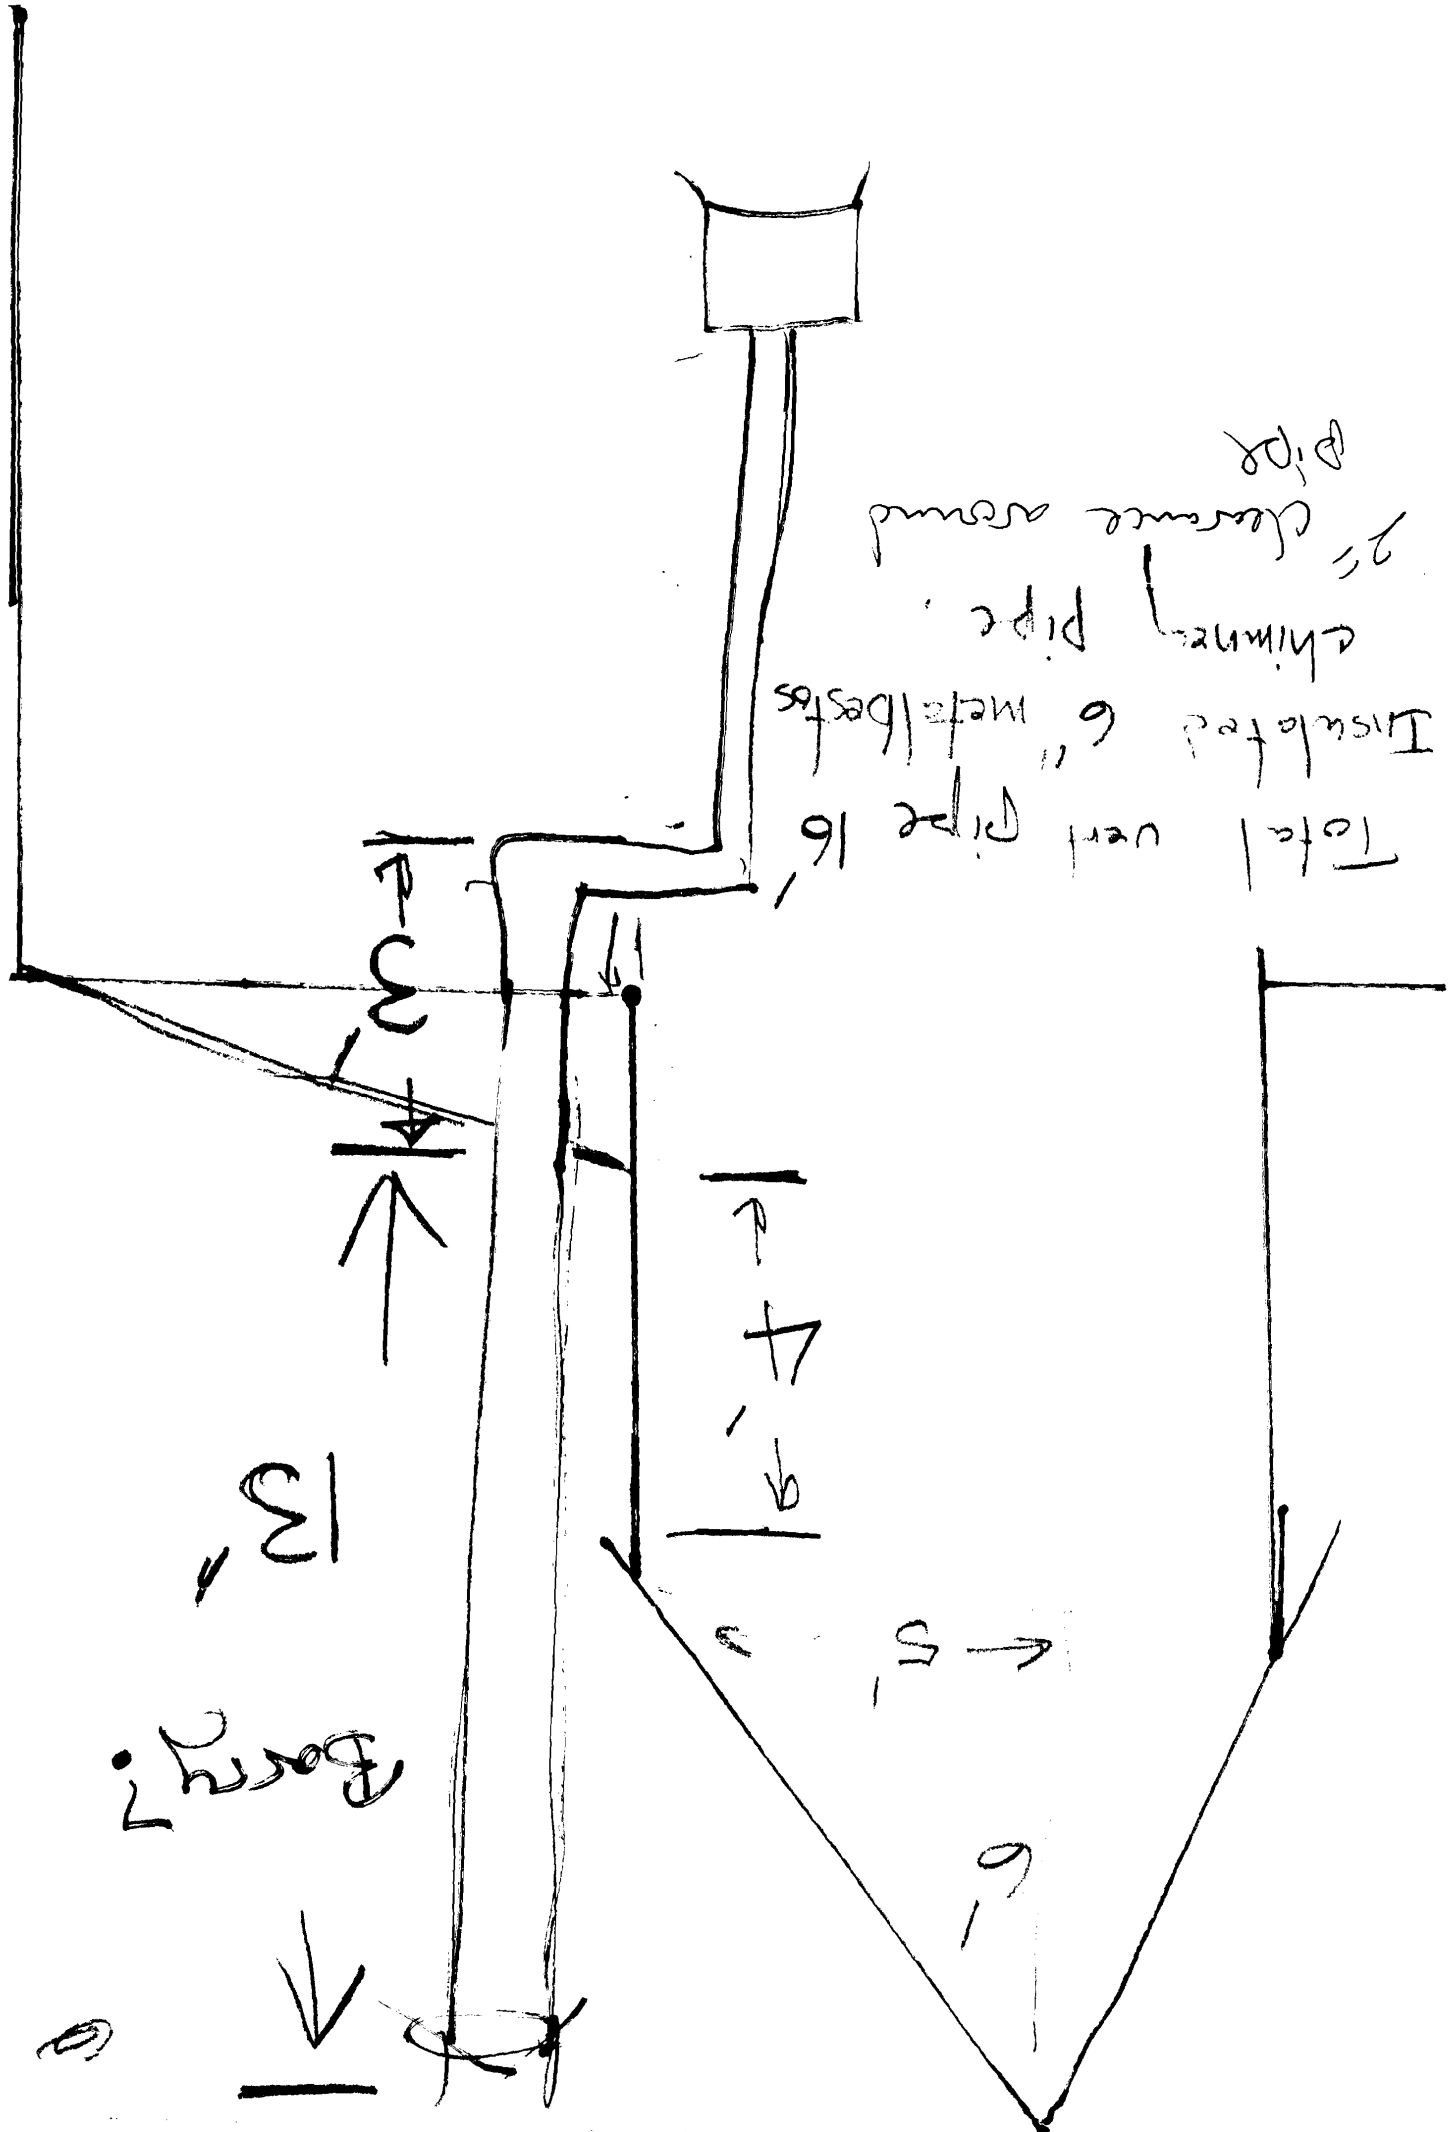 6'
5'
13'
4'
3'
Total vent pipe 16'
Insulated 6" metalbestos
chimney pipe.
2" clearance around
pipe